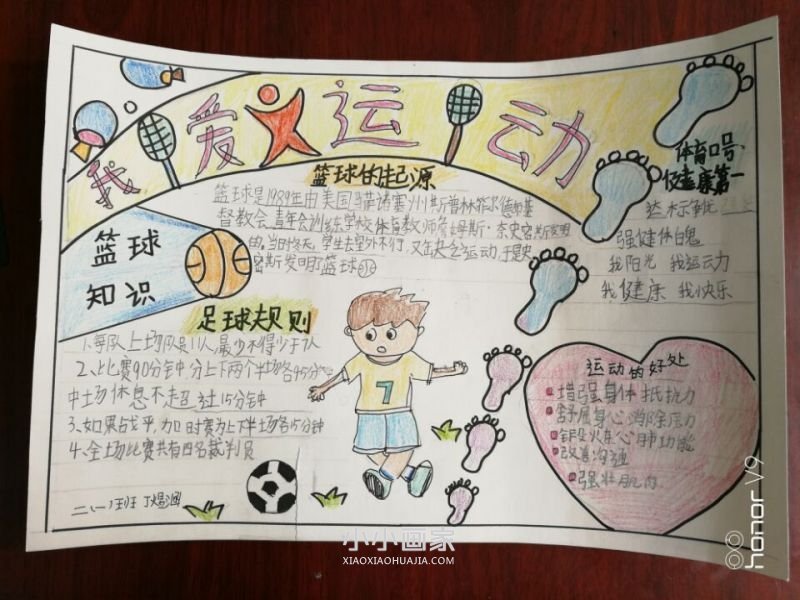 我爱运动
篮球的起源
篮球是1989年由美国马诸塞州斯普林菲尔德市基
督教会青年会训练学校体育教师詹姆斯·奈史密斯发明
的,当时冬天,学生去室外不行,又缺乏运动,于是史
密斯发明了篮球
篮球
知识
体育口号
健康第一
达标争优
强健体魄
我阳光 我运动
我健康 我快乐
足球规则
1、每队上场队员11人,最少不得少于7人
2、比赛90分钟,分上下两个半场各45分
中场休息不超过15分钟
3、如果战平,加时赛为上下半场各15分钟
4、全场比赛共有四名裁判员
运动的好处
增强身体抵抗力
舒展身心消除压力
锻炼心肺功能
改善沟通
强壮肌肉
二(一)班 丁
小小画家
XIAOXIAOHUAJIA.COM
honor V9
7